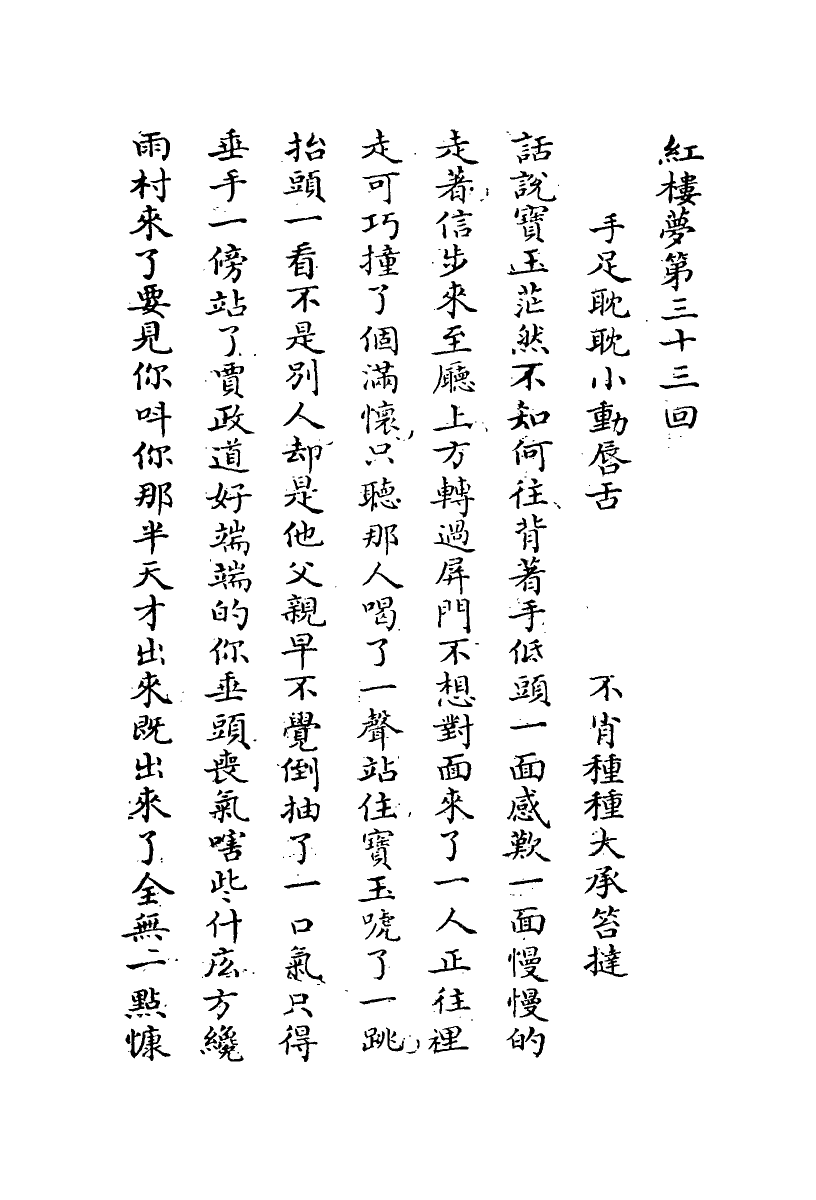 紅樓夢第三十三回
手足耽耽小動唇舌　不肖種種大承笞撻
話說寶玉茫然不知何往背着手低頭一面感歎一面慢慢的
走着信步來至廳上方轉過屏門不想對面來了一人正往裡
走可巧撞了個滿懷只聽那人喝了一聲站住寶玉唬了一跳
抬頭一看不是別人却是他父親早不覺倒抽了一口氣只得
垂手一傍站了賈政道好端端的你垂頭喪氣嗐些什庅方纔
雨村來了要見你呌你那半天才出來既出來了全無一點慷